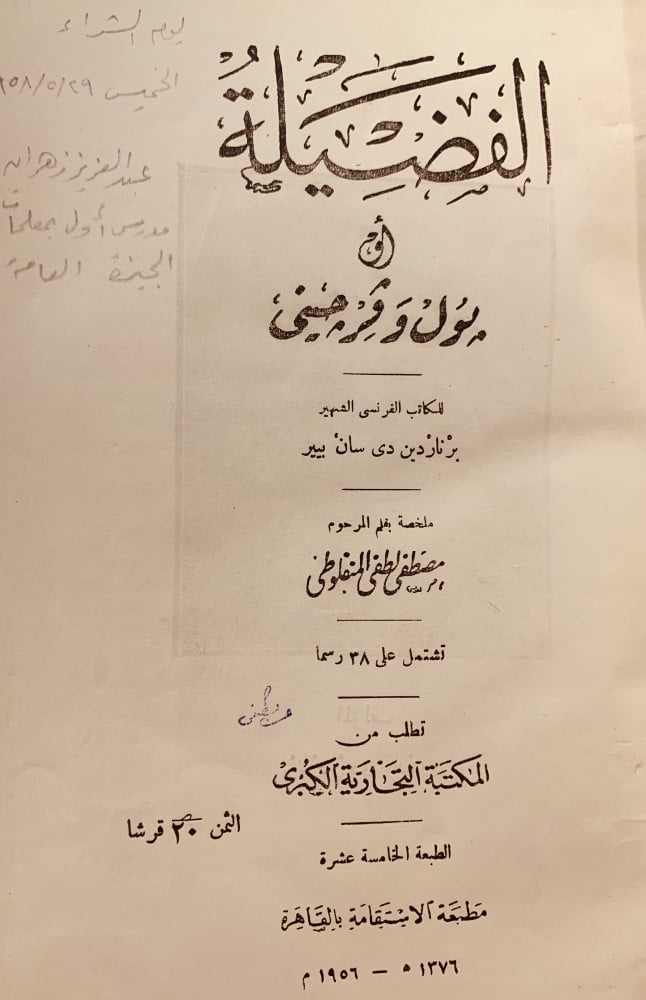 يوم الشراء
الخميس ٢٩/٥/١٩٥٨
عبد العزيز زهران
مدرس أول بمعلمات
الجيزة العامة
الفَضِيلَةُ
أو
بول وَفِرْجيني
للكاتب الفرنسى الشهير
برْناردين دى سانْ بيير
ملخصة بقلم المرحوم
مصطفى لطفى المنفلوطى
تشتمل على ٣٨ رسما
تطلب من
المكتبة التجارية الكبرى
الثمن ٢٠ قرشا
الطبعة الخامسة عشرة
مطبعة الاستقامة بالقاهرة
١٣٧٦ ه — ١٩٥٦ م